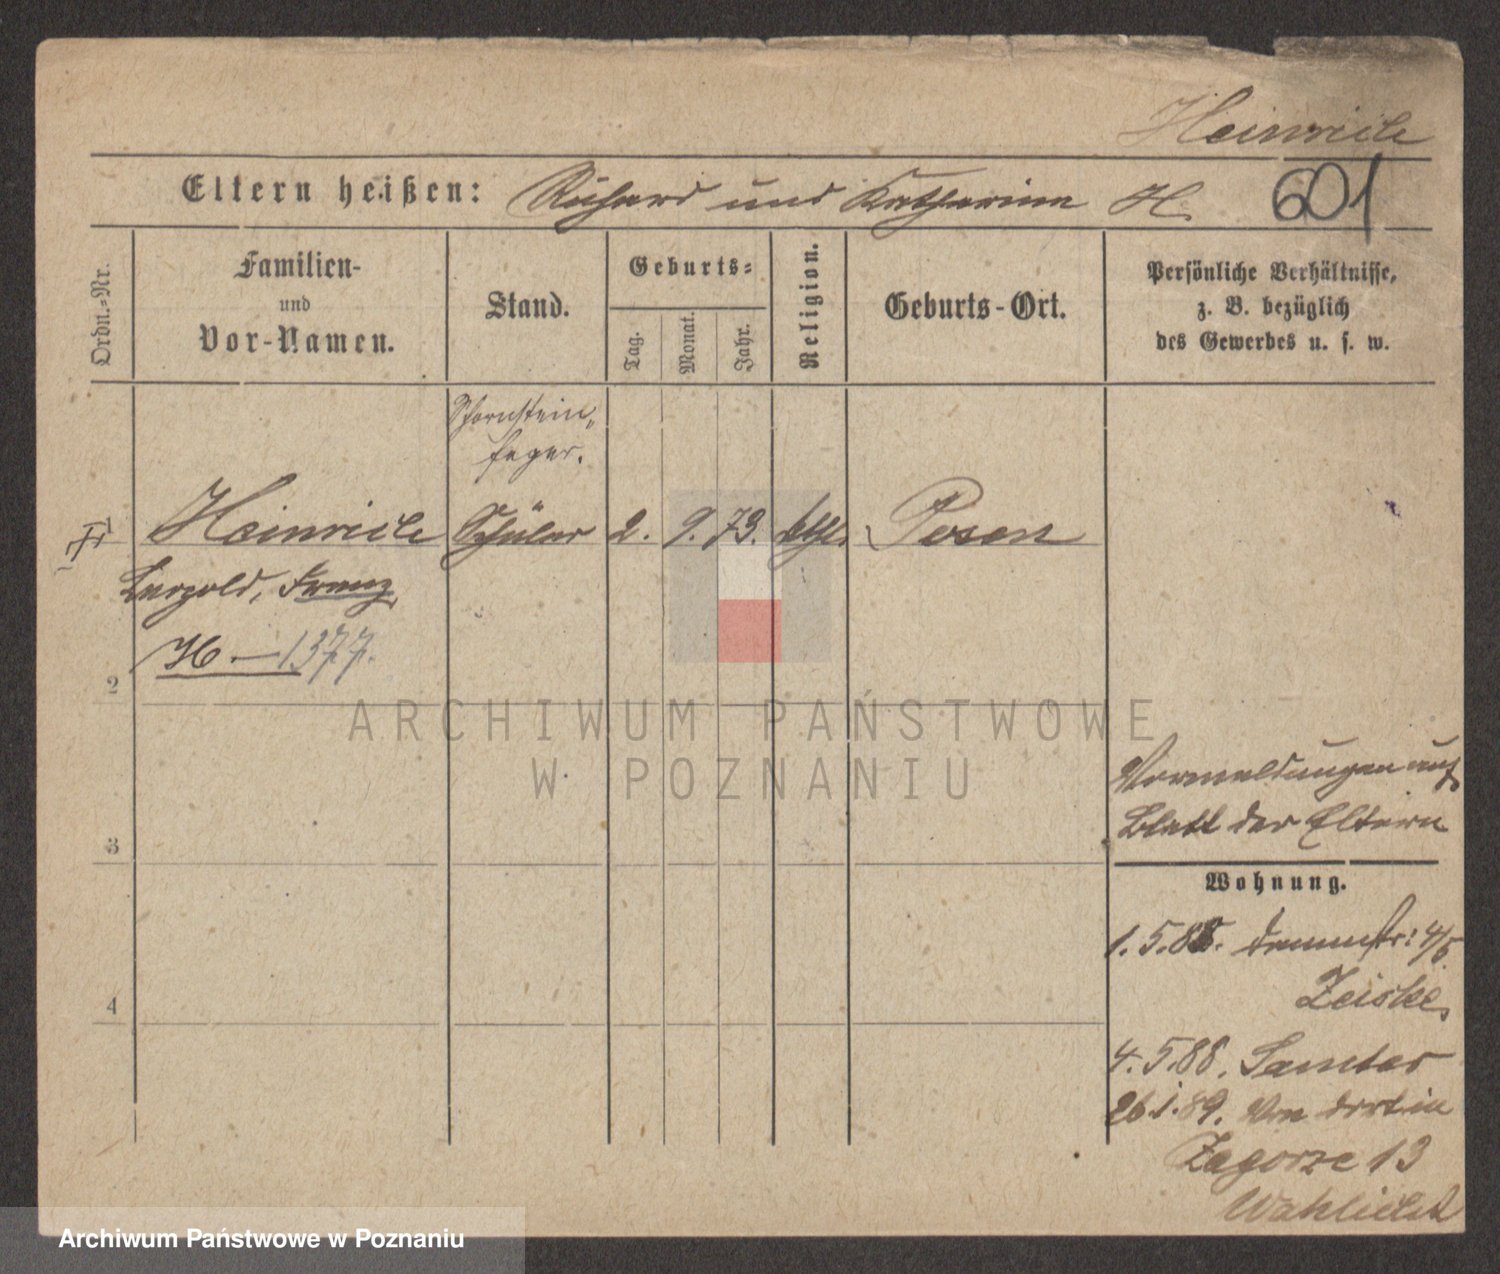 Heinrich
Eltern heißen: Richard und Katharina H.
601
Ordn.-Nr.
Familien-
und
Vor-Namen.
Stand.
Geburts-
Tag.
Monat.
Jahr.
Religion.
Geburts-Ort.
Persönliche Verhältnisse,
z. B. bezüglich
des Gewerbes u. s. w.
Schornstein-
feger.
1
Heinrich Schüler 2. 9. 73. kthl. Posen
Leopold, Franz
H - 1377.
2
3
4
Vormeldungen auf
Blatt der Eltern
Wohnung.
1.5.88. Dammstr: 4/5
Zeiske
4.5.88. Samter
26.1.89. Von dort in
Zagorze 13
ARCHIWUM PAŃSTWOWE
W POZNANIU
Archiwum Państwowe w Poznaniu